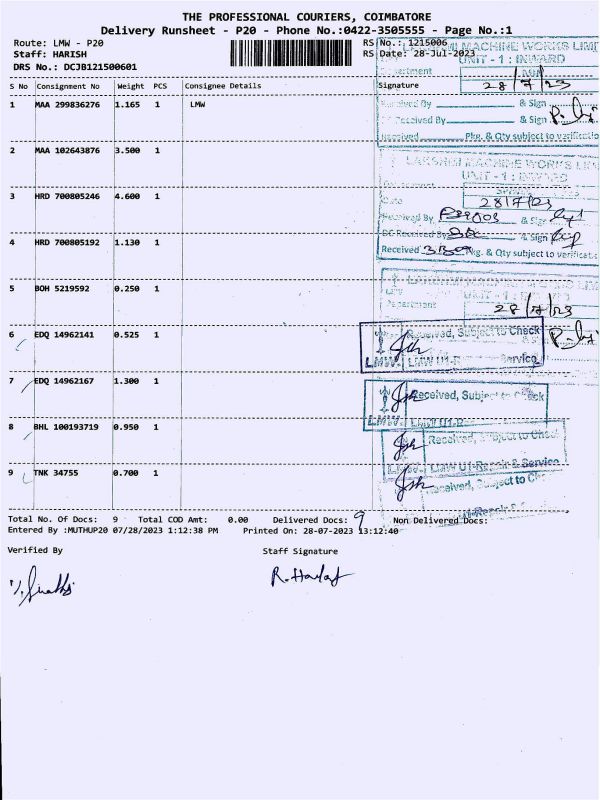 THE PROFESSIONAL COURIERS, COIMBATORE
Delivery Runsheet - P20 - Phone No.:0422-3505555 - Page No.:1
Route: LMW - P20 RS No.: 1215006
Staff: HARISH RS Date: 28-Jul-2023
DRS No.: DCJB121500601
S No Consignment No Weight PCS Consignee Details Signature
1 MAA 299836276 1.165 1 LMW
2 MAA 102643876 3.500 1
3 HRD 700805246 4.600 1
4 HRD 700805192 1.130 1
5 BOH 5219592 0.250 1
6 EDQ 14962141 0.525 1
7 EDQ 14962167 1.300 1
8 BHL 100193719 0.950 1
9 TNK 34755 0.700 1
MACHINE WORKS LIMI
UNIT - 1 : INWARD
28/7/23
Received By & Sign
Received By & Sign
Received Pkg. & Qty subject to verificatio
LAKSHMI MACHINE WORKS LIM
UNIT - 1 : INWARD
Date 28/7/23
Received By & Sign
DC Received By & Sign
Received Pkg. & Qty subject to verificati
28/7/23
Received, Subject to Check
LMW LMW U1-R Service
Received, Subject to Check
LMW LMW U1-R
Received, Subject to Chec
LMW LMW U1-Repair & Service
Received, Subject to Ch
Total No. Of Docs: 9 Total COD Amt: 0.00 Delivered Docs: 9 Non Delivered Docs:
Entered By :MUTHUP20 07/28/2023 1:12:38 PM Printed On: 28-07-2023 13:12:40
Verified By Staff Signature